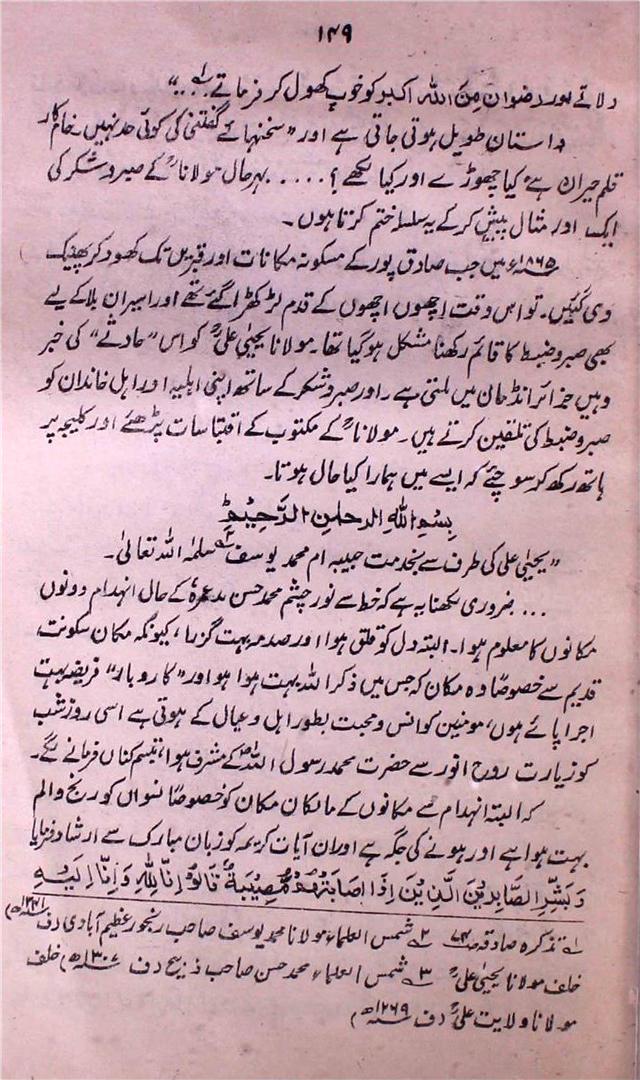 ۱۴۹
دلاتے اور رضوان مِنَ اللہ اکبر کو خوب کھول کر فرماتے ۱؎ ..."
داستان طویل ہوتی جاتی ہے اور "سخنہائے گفتنی کی کوئی حد نہیں۔ خام کار
قلم حیران ہے" کیا چھوڑے اور کیا لکھے؟ .... بہرحال مولاناؒ کے صبر و شکر کی
ایک اور مثال پیش کر کے یہ سلسلہ ختم کرتا ہوں۔
۱۸۶۵ء میں جب صادق پور کے مسکونہ مکانات اور قبریں تک کھود کر پھینک
دی گئیں۔ تو اس وقت اچھوں اچھوں کے قدم لڑکھڑا گئے تھے اور اسیران بلا کے لیے
بھی صبر و ضبط کا قائم رکھنا مشکل ہو گیا تھا۔ مولانا یحییٰ علیؒ کو اس "حادثے" کی خبر
وہیں جزائر انڈمان میں ملتی ہے۔ اور صبر و شکر کے ساتھ اپنی اہلیہ اور اہل خاندان کو
صبر و ضبط کی تلقین کرتے ہیں۔ مولاناؒ کے مکتوب کے اقتباسات پڑھئے اور کلیجہ پر
ہاتھ رکھ کر سوچئے کہ ایسے میں ہمارا کیا حال ہوتا۔
بِسْمِ اللہِ الرحمٰنِ الرَّحِیْمِ
"یحییٰ علی کی طرف سے بخدمت حبیبہ ام محمد یوسف ۲؎ سلمہا اللہ تعالیٰ۔
... ضروری لکھنا یہ ہے کہ خط سے نور چشم محمد حسن مدعمرہٗ کے حال انہدام دونوں
مکانوں کا معلوم ہوا۔ البتہ دل کو قلق ہوا اور صدمہ بہت گزرا، کیونکہ مکان سکونت
قدیم سے خصوصاً وہ مکان کہ جس میں ذکر اللہ بہت ہوا ہو اور "کاروبار" فریضہ بہت
اجرا پائے ہوں، مومنین کو انس و محبت بطور اہل و عیال کے ہوتی ہے اسی روز شب
کو زیارت روح انور سے حضرت محمد رسول اللہؐ کے مشرف ہوا، تبسم کناں فرمانے لگے۔
کہ البتہ انہدام سے مکانوں کے مالکان مکان کو خصوصاً نسواں کو رنج و الم
بہت ہوا ہے اور ہونے کی جگہ ہے اور ان آیات کریمہ کو زبان مبارک سے ارشاد فرمایا
وَبَشِّرِ الصَّابِرِیْنَ الَّذِیْنَ اِذَا اَصَابَتْہُمْ مُّصِیْبَۃٌ قَالُوْا اِنَّا لِلّٰہِ وَاِنَّا اِلَیْہِ
۱؎ تذکرہ صادقہ ص ۲؎ شمس العلماء مولانا محمد یوسف صاحب رنجور عظیم آبادی (ف
خلف مولانا یحییٰ علیؒ ۳؎ شمس العلماء محمد حسن صاحب ذبیح (ف ۱۳۰۷ھ) خلف
مولانا ولایت علیؒ (ف ۱۲۶۹ھ)